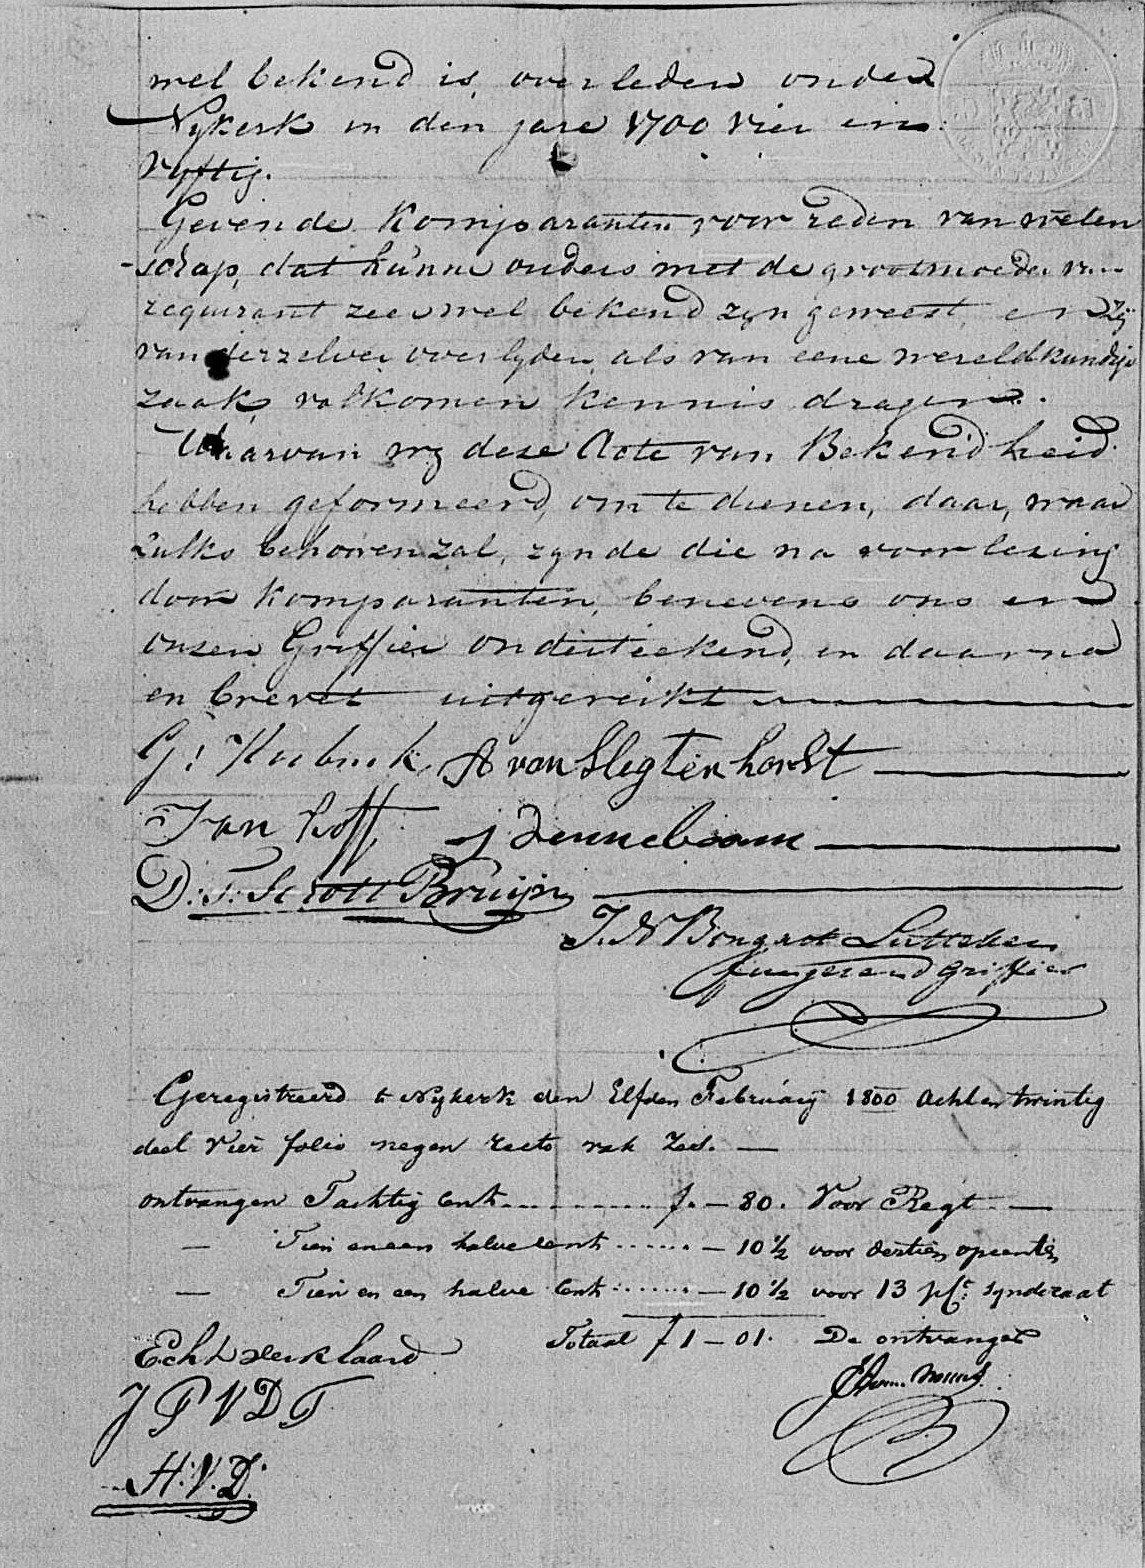 wel bekend is, overleden onder
Nykerk in den jare 1700 vier en
vyftig.
Gevende Komparanten, voor reden van weten
-schap, dat hunne ouders met de grootmoeder van
requirant zeer wel bekend zyn geweest, en zy
van derzelver overlyden, als van eene wereldkundige
zaak, volkomen kennis dragen.
Waarvan wy deze Acte van Bekendheid
hebben geformeerd, om te dienen, daar, waar
zulks behooren zal, zynde die na voorlezing
door Komparanten, benevens ons en
onzen Griffier onderteekend, en daarna
en brevet uitgereikt
G: A van Slegtenhorst
Jan Hoff J Denneboom
D: F: Schott Bruijn
J. N Bongardt
fungerend Griffier
Geregistreerd te Nykerk den Elfden February 1800 acht en twintig
deel vier folio negen recto vak zes.
ontvangen Tachtig Cent .......... f. — 80. Voor Regt
— Tien en een halve cent ...... — 10 ½ voor dertien opcenten
— Tien en een halve Cent ....... — 10 ½ voor 13 pCt. syndicaat
Totaal f 1 — 01. De ontvanger
Echt verklaard
J P V D T
H. V. D.